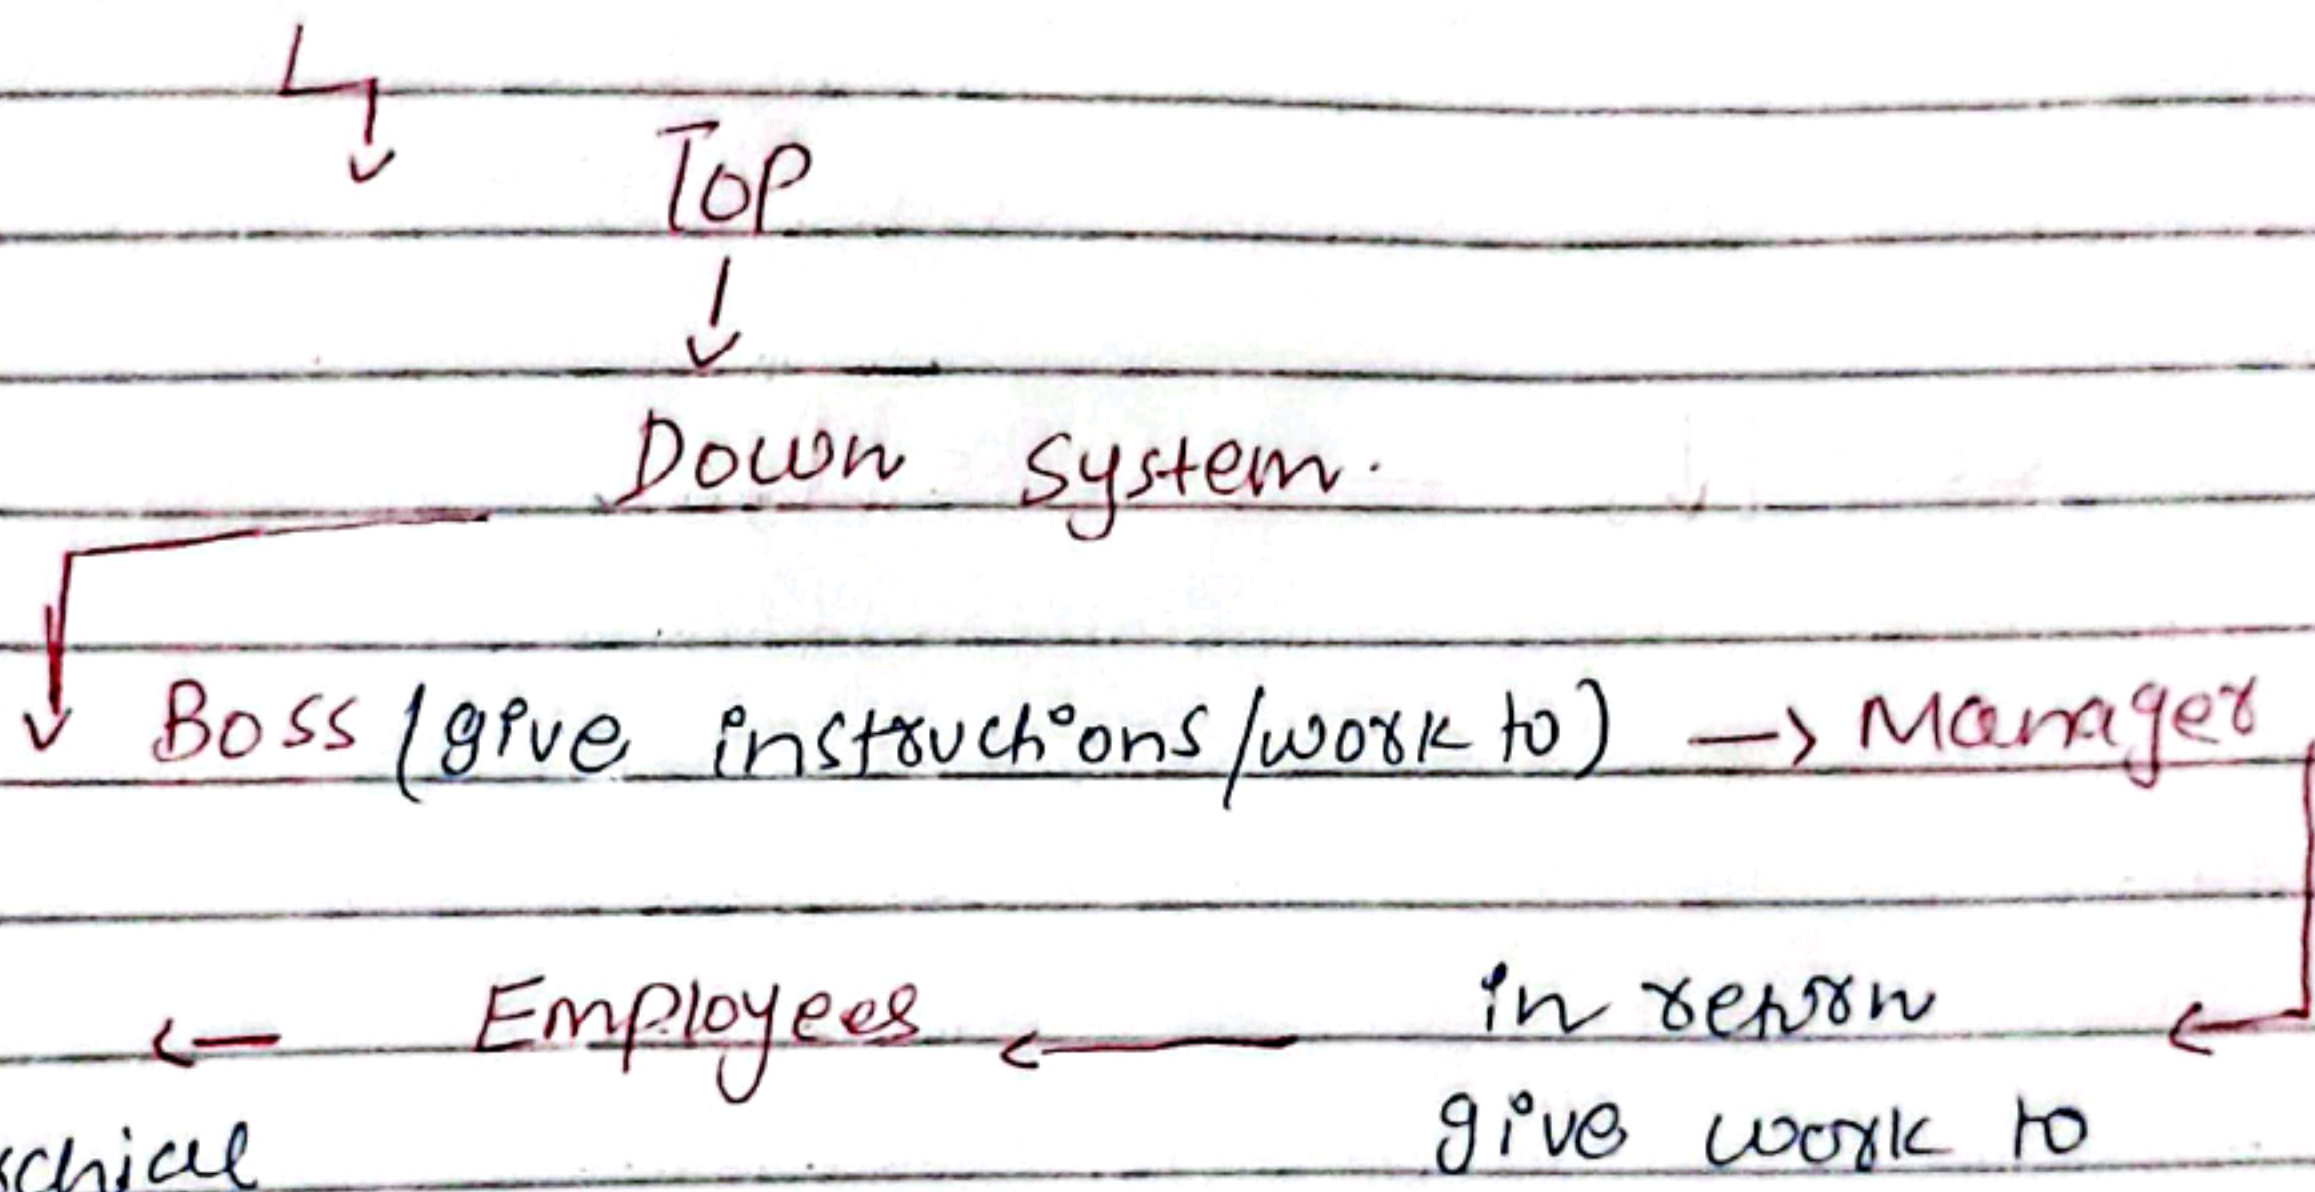 Top
↓
Down System.
Boss (give instructions/work to) → Manager
← Employees ← in return
give work to